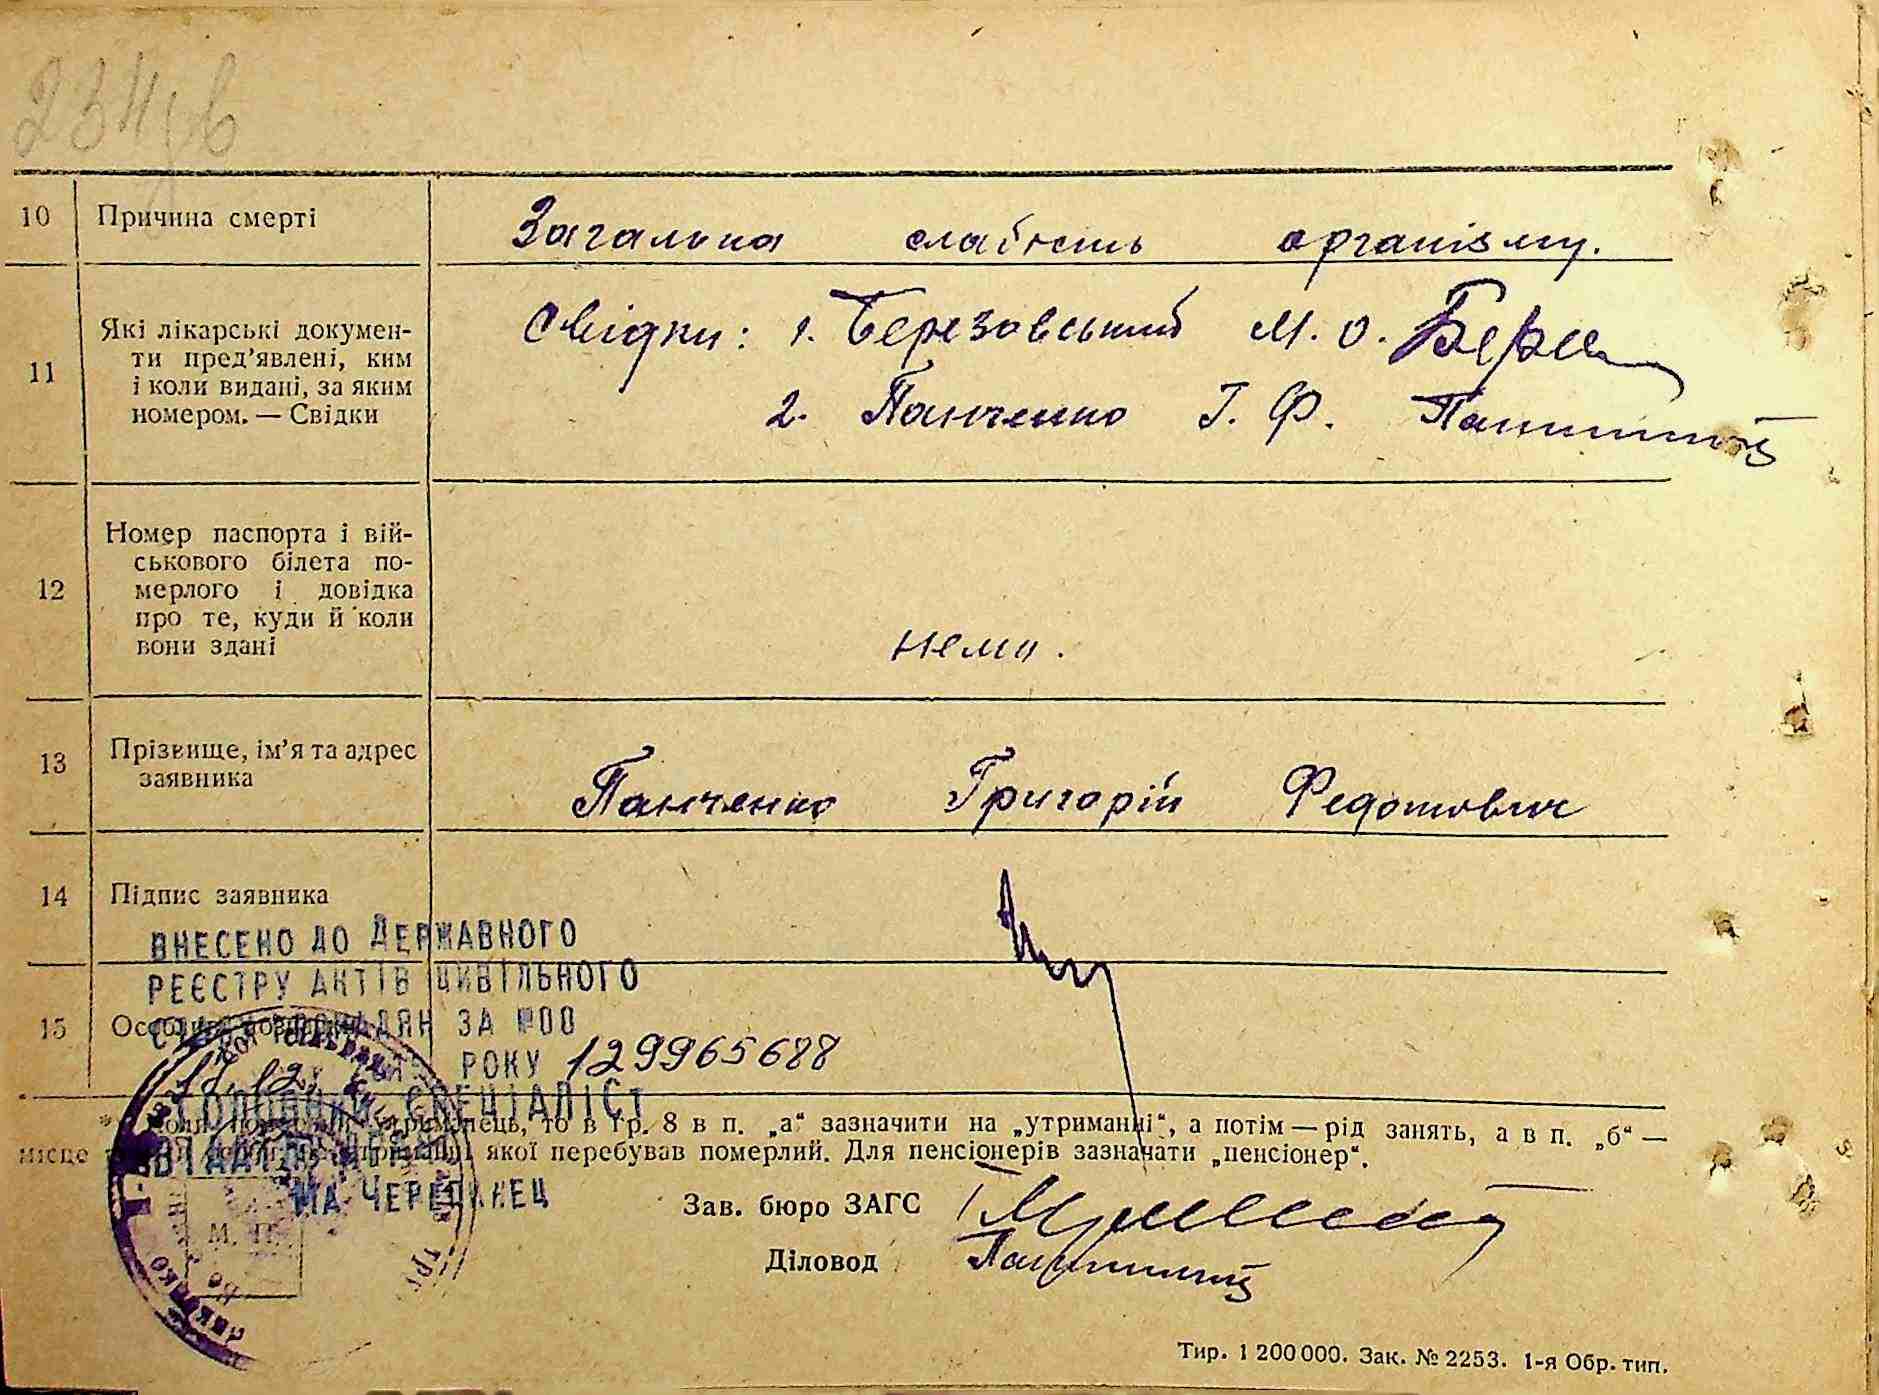 234
10 Причина смерті Загальна слабкість організму.
11 Які лікарські докумен-
ти пред’явлені, ким
і коли видані, за яким
номером. — Свідки
Свідки: 1. Березовський М. О.
2. Панченко Г. Ф.
12 Номер паспорта і вій-
ськового білета по-
мерлого і довідка
про те, куди й коли
вони здані
нема.
13 Прізвище, ім’я та адрес
заявника
Панченко Григорій Федотович
14 Підпис заявника
ВНЕСЕНО ДО ДЕРЖАВНОГО
РЕЄСТРУ АКТІВ ЦИВІЛЬНОГО
15 ЗА №00
РОКУ 129965688
СПЕЦІАЛІСТ
то в гр. 8 в п. „а“ зазначити на „утриманні“, а потім — рід занять, а в п. „б“ —
місце якої перебував померлий. Для пенсіонерів зазначати „пенсіонер“.
Зав. бюро ЗАГС
Діловод
М. П.
Тир. 1 200 000. Зак. № 2253. 1-я Обр. тип.